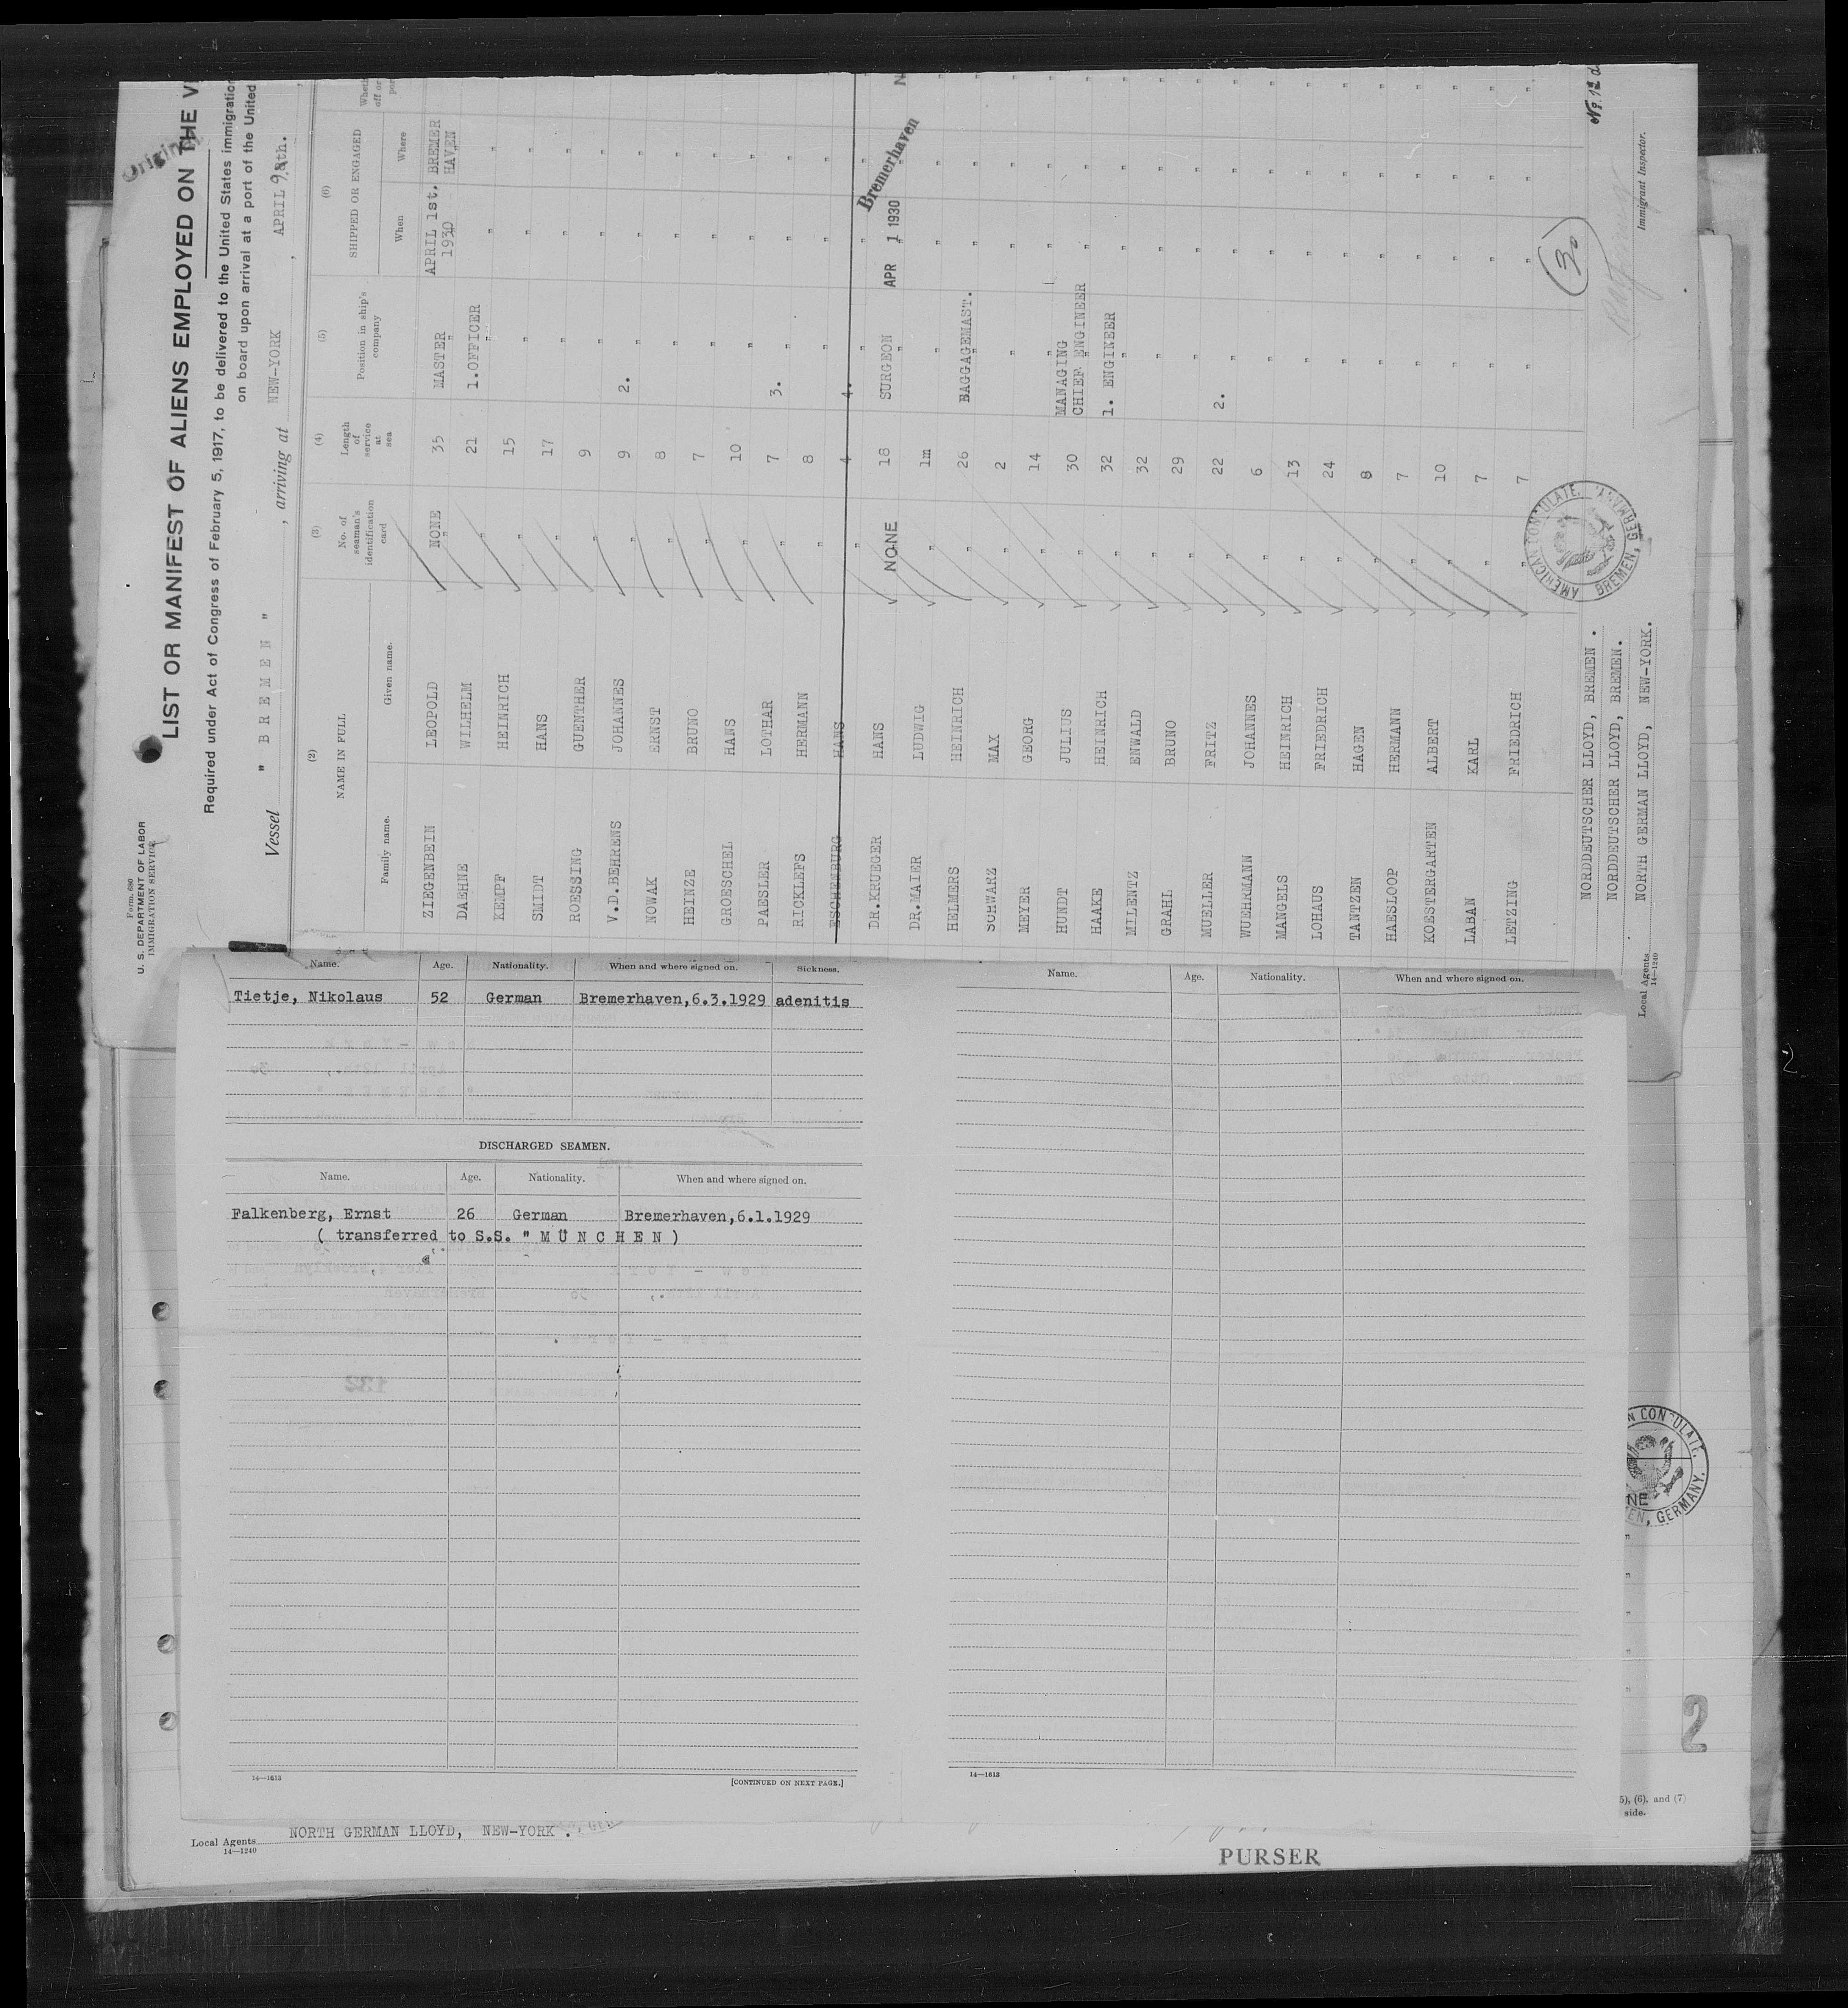 Original
Form 680
U. S. DEPARTMENT OF LABOR
IMMIGRATION SERVICE
LIST OR MANIFEST OF ALIENS EMPLOYED ON THE
Required under Act of Congress of February 5, 1917, to be delivered to the United States
on board upon arrival at a port of the United
Vessel " B R E M E N " , arriving at NEW-YORK , APRIL
(2) (3) (4) (5) (6)
NAME IN FULL No. of seaman's identification card Length of service at sea Position in ship's company SHIPPED OR ENGAGED
Family name. Given name. When Where
ZIEGENBEIN LEOPOLD NONE 35 MASTER APRIL 1st. 1930 BREMER HAVEN
DAEHNE WILHELM " 21 1.OFFICER
KEMPF HEINRICH " 15 " " "
SMIDT HANS " 17 " " "
ROESSING GUENTHER " 9 " " "
V.D.BEHRENS JOHANNES " 9 2. " " "
NOWAK ERNST " 8 " " "
HEINZE BRUNO " 7 " " "
GROESCHEL HANS " 10 " " "
PAESLER LOTHAR " 7 3. " " "
RICKLEFS HERMANN " 8 " " "
ESCHENBURG HANS " 4 4. " " "
DR.KRUEGER HANS NONE 18 SURGEON APR 1 1930 Bremerhaven
DR.MAIER LUDWIG " 1m " " "
HELMERS HEINRICH " 26 BAGGAGEMAST. " "
SCHWARZ MAX " 2 " " "
MEYER GEORG " 14 " " "
HUNDT JULIUS " 30 MANAGING CHIEF ENGINEER " "
HAAKE HEINRICH " 32 1. ENGINEER " "
MILENTZ ENWALD " 32 " " "
GRAHL BRUNO " 29 " " "
MUELLER FRITZ " 22 2. " " "
WUEHRMANN JOHANNES " 6 " " "
MANGELS HEINRICH " 13 " " "
LOHAUS FRIEDRICH " 24 " " "
TANTZEN HAGEN " 8 " " "
HAESLOOP HERMANN " 7 " " "
KOSTERGARTEN ALBERT " 10 " " "
LABAN KARL " 7 " " "
LETZING FRIEDRICH " 7 " " "
NORDDEUTSCHER LLOYD, BREMEN .
NORDDEUTSCHER LLOYD, BREMEN.
Local Agents NORTH GERMAN LLOYD, NEW-YORK.
14—1240
AMERICAN CONSULATE.
BREMEN, GERMANY.
Immigrant Inspector.
Name. Age. Nationality. When and where signed on. Sickness.
Tietje, Nikolaus 52 German Bremerhaven,6.3.1929 adenitis
DISCHARGED SEAMEN.
Name. Age. Nationality. When and where signed on.
Falkenberg, Ernst 26 German Bremerhaven,6.1.1929
( transferred to S.S. " M Ü N C H E N )
14—1613 [CONTINUED ON NEXT PAGE.]
Name. Age. Nationality. When and where signed on.
14—1613
N CONSULATE.
NE
EN, GERMANY.
2
5), (6), and (7)
side.
Local Agents NORTH GERMAN LLOYD, NEW-YORK .
14—1240
PURSER